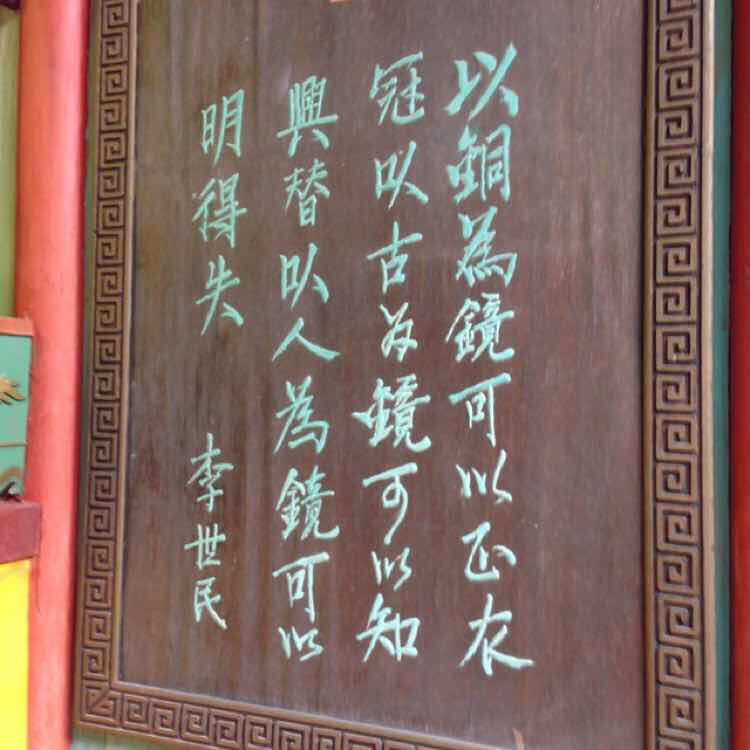 以銅為鏡可以正衣
冠以古为鏡可以知
興替以人為鏡可以
明得失
李世民